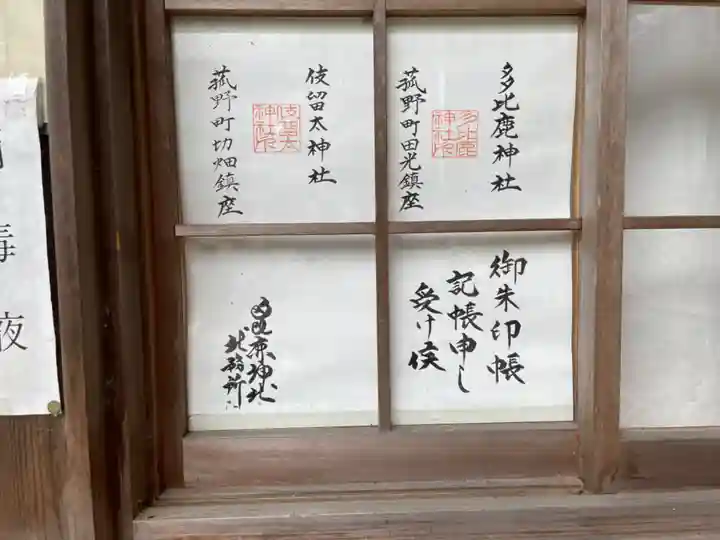 多比鹿神社
多比鹿
神社印
菰野町田光鎮座
伎留太神社
伎留太
神社印
菰野町切畑鎮座
御朱印帳
記帳申し
受け候
多比鹿神社
社務所
毒
液